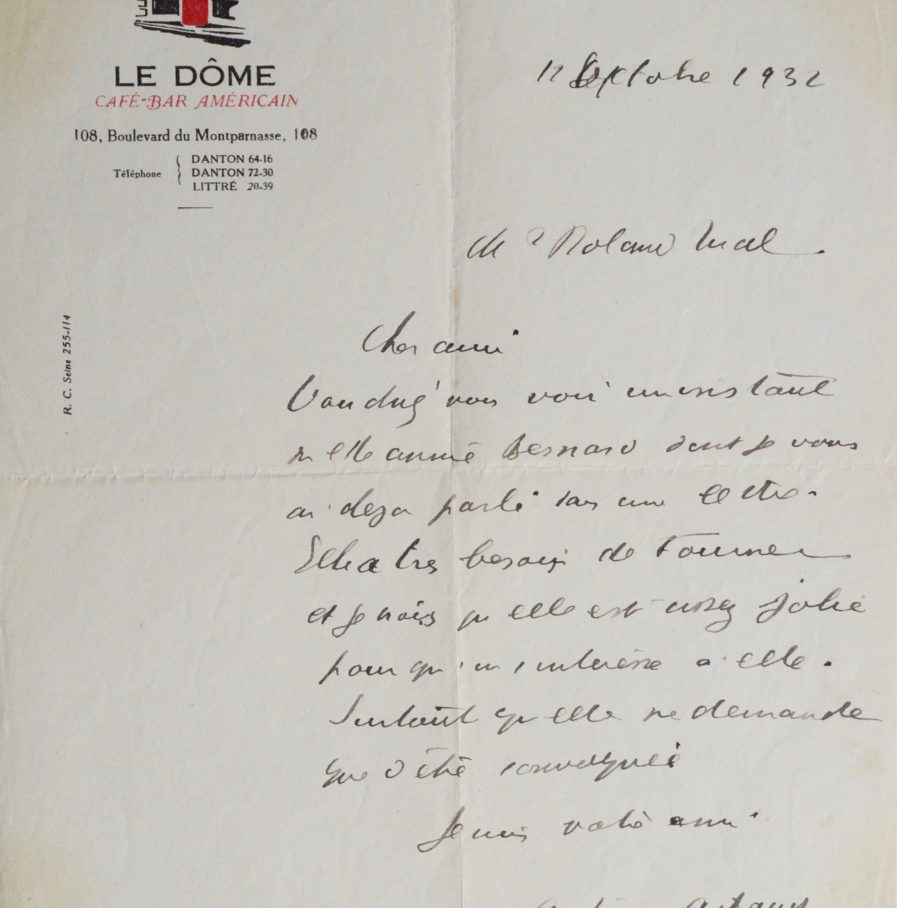 LE DÔME
CAFÉ-BAR AMÉRICAIN
108, Boulevard du Montparnasse, 108
Téléphone
DANTON 64-16
DANTON 72-30
LITTRÉ 20-39
R. C. Seine 255-114
12 Octobre 1932
Mr Roland
Cher ami
Voudriez vous voir un instant
Melle Annie Besnard dont je vous
ai deja parlé dans une lettre.
Elle a tres besoin de tourner
et je crois qu elle est assez jolie
pour qu'on s'interesse a elle.
Surtout qu elle ne demande
que d être convoquée
Je suis votre ami
Antonin Artaud